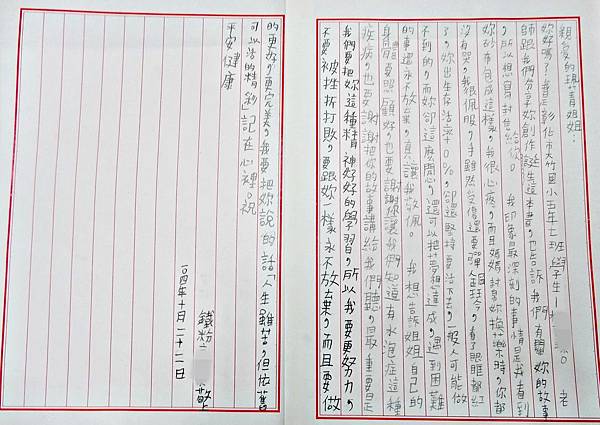 親愛的琪青姐姐：
妳好嗎？我是彰化市大竹國小五年七班學生 老
師跟我們分享妳創作誕生這本書，也告訴我們有關妳的故事
，所以想寫封信給你。 我印象最深刻的事情是我看到
妳的布包成這樣，我很心疼，而且媽媽封幫妳換藥時，你都
沒有哭，我很佩服，手雖然受傷還要彈鋼琴，看了眼眶都紅
了，妳出生存活率10%，卻還堅持要活下去，一般人可能做
不到的，而妳卻這麼開心，還可以把夢想達成，遇到困難
的事還永不放棄，真讓我敬佩。 我想告訴姐姐自己的
身體要照顧好，也要謝謝你讓我們知道有水泡症這種
疾病，也要謝謝把你的故事講給我們聽，最重要是
我們要把妳這種精神好好的學習，所以我要更努力，
不要被挫折打敗，要跟妳一樣永不放棄，而且要做
的更好，更完美，我要把妳說的話「人生雖苦，但依舊
可以活的精彩」記在心裡。祝
平安健康
鐵粉 敬
一〇四年十月二十二日